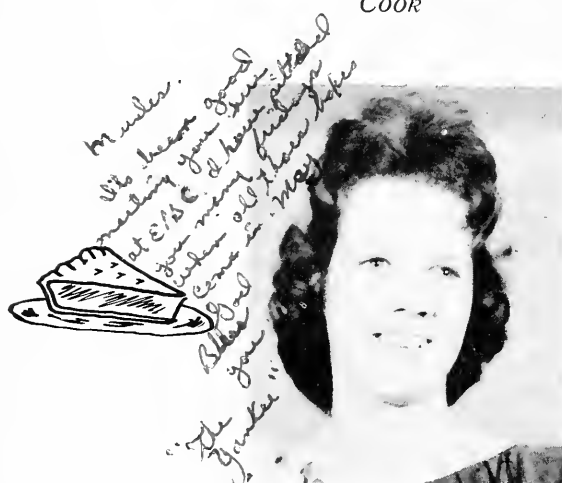 Cook
Mules.
It's been good
meeting you here
at EIBC. I have pitied
you many fridays
when all those hikes
came in. May
God
Bless
you
"The
Yankee"